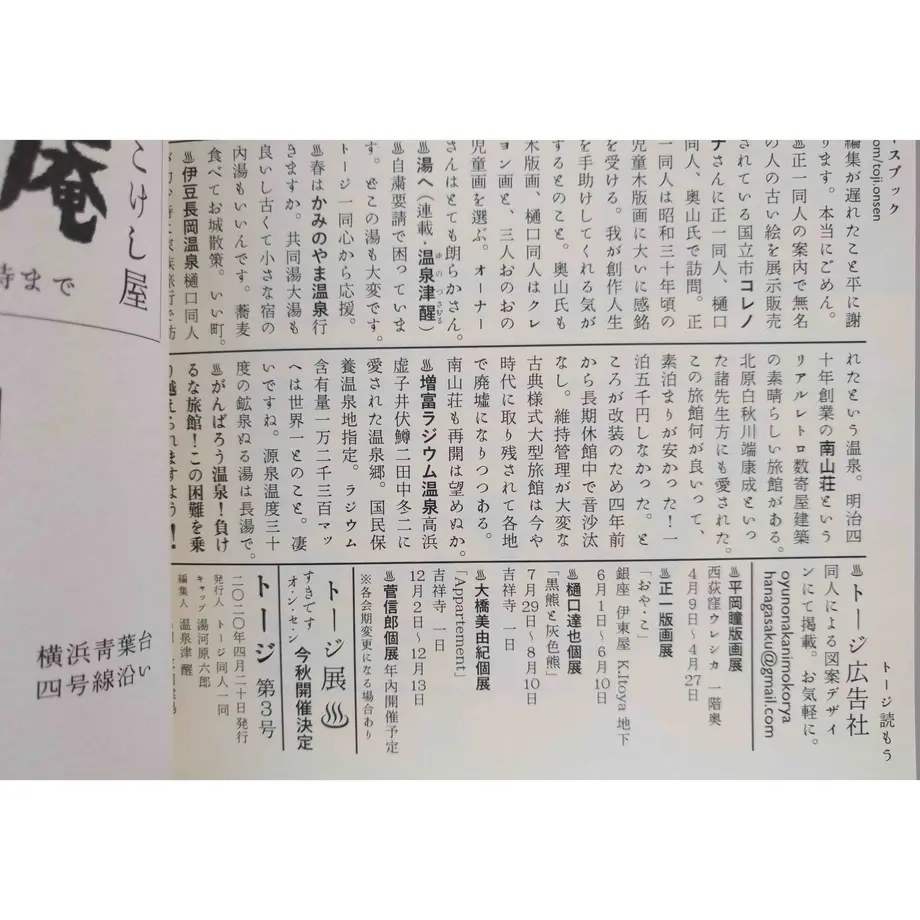 ースブック
com/toji.onsen
編集が遅れたこと平に謝
ります。本当にごめん。
♨正一同人の案内で無名
の人の古い絵を展示販売
されている国立市コレノ
ナさんに正一同人、樋口
同人、奥山氏で訪問。正
一同人は昭和三十年頃の
児童木版画に大いに感銘
を受ける。我が創作人生
を手助けしてくれる気が
するとのこと。奥山氏も
木版画、樋口同人はクレ
ヨン画と、三人おのおの
児童画を選ぶ。オーナー
さんはとても朗らかさん。
♨湯へ(連載・温泉津醒)
ゆのつさむる
♨自粛要請で困っていま
す。どこの湯も大変です。
トージ一同心から応援。
♨春はかみのやま温泉行
きますか。共同湯大湯も
良いし古くて小さな宿の
内湯もいいんです。蕎麦
食べてお城散策。いい町。
♨伊豆長岡温泉樋口同人
れたという温泉。明治四
十年創業の南山荘という
リアルレトロ数寄屋建築
の素晴らしい旅館がある。
北原白秋川端康成といっ
た諸先生方にも愛された。
この旅館何が良いって、
素泊まりが安かった!一
泊五千円しなかった。と
ころが改装のため四年前
から長期休館中で音沙汰
なし。維持管理が大変な
古典様式大型旅館は今や
時代に取り残されて各地
で廃墟になりつつある。
南山荘も再開は望めぬか。
♨増富ラジウム温泉高浜
虚子井伏鱒二田中冬二に
愛された温泉郷。国民保
養温泉地指定。ラジウム
含有量一万二千三百マッ
ヘは世界一とのこと。凄
いですね。源泉温度三十
度の鉱泉ぬる湯は長湯で。
♨がんばろう温泉!負け
るな旅館!この困難を乗
り越えられますよう!
トージ読もう
♨トージ広告社
同人による図案デザイ
ンにて掲載。お気軽に。
oyunonakaniimokorya
hanagasaku@gmail.com
♨平岡瞳版画展
西荻窪ウレシカ 一階奥
4月9日~4月27日
♨正一版画展
「おや・こ」
銀座 伊東屋 K.Itoya 地下
6月1日~6月10日
♨樋口達也個展
「黒熊と灰色熊」
7月29日~8月10日
吉祥寺 一日
♨大橋美由紀個展
「Appartement」
吉祥寺 一日
12月2日~12月13日
♨菅信郎個展 年内開催予定
※各会期変更になる場合あり
トージ展♨
すきです
オ・ン・セ・ン
今秋開催決定
トージ 第3号
二〇二〇年四月二十日発行
発行人 トージ同人一同
キャップ 湯河原六郎
編集人 温泉津 醒
こけし屋
庵
時まで
横浜青葉台
四号線沿い